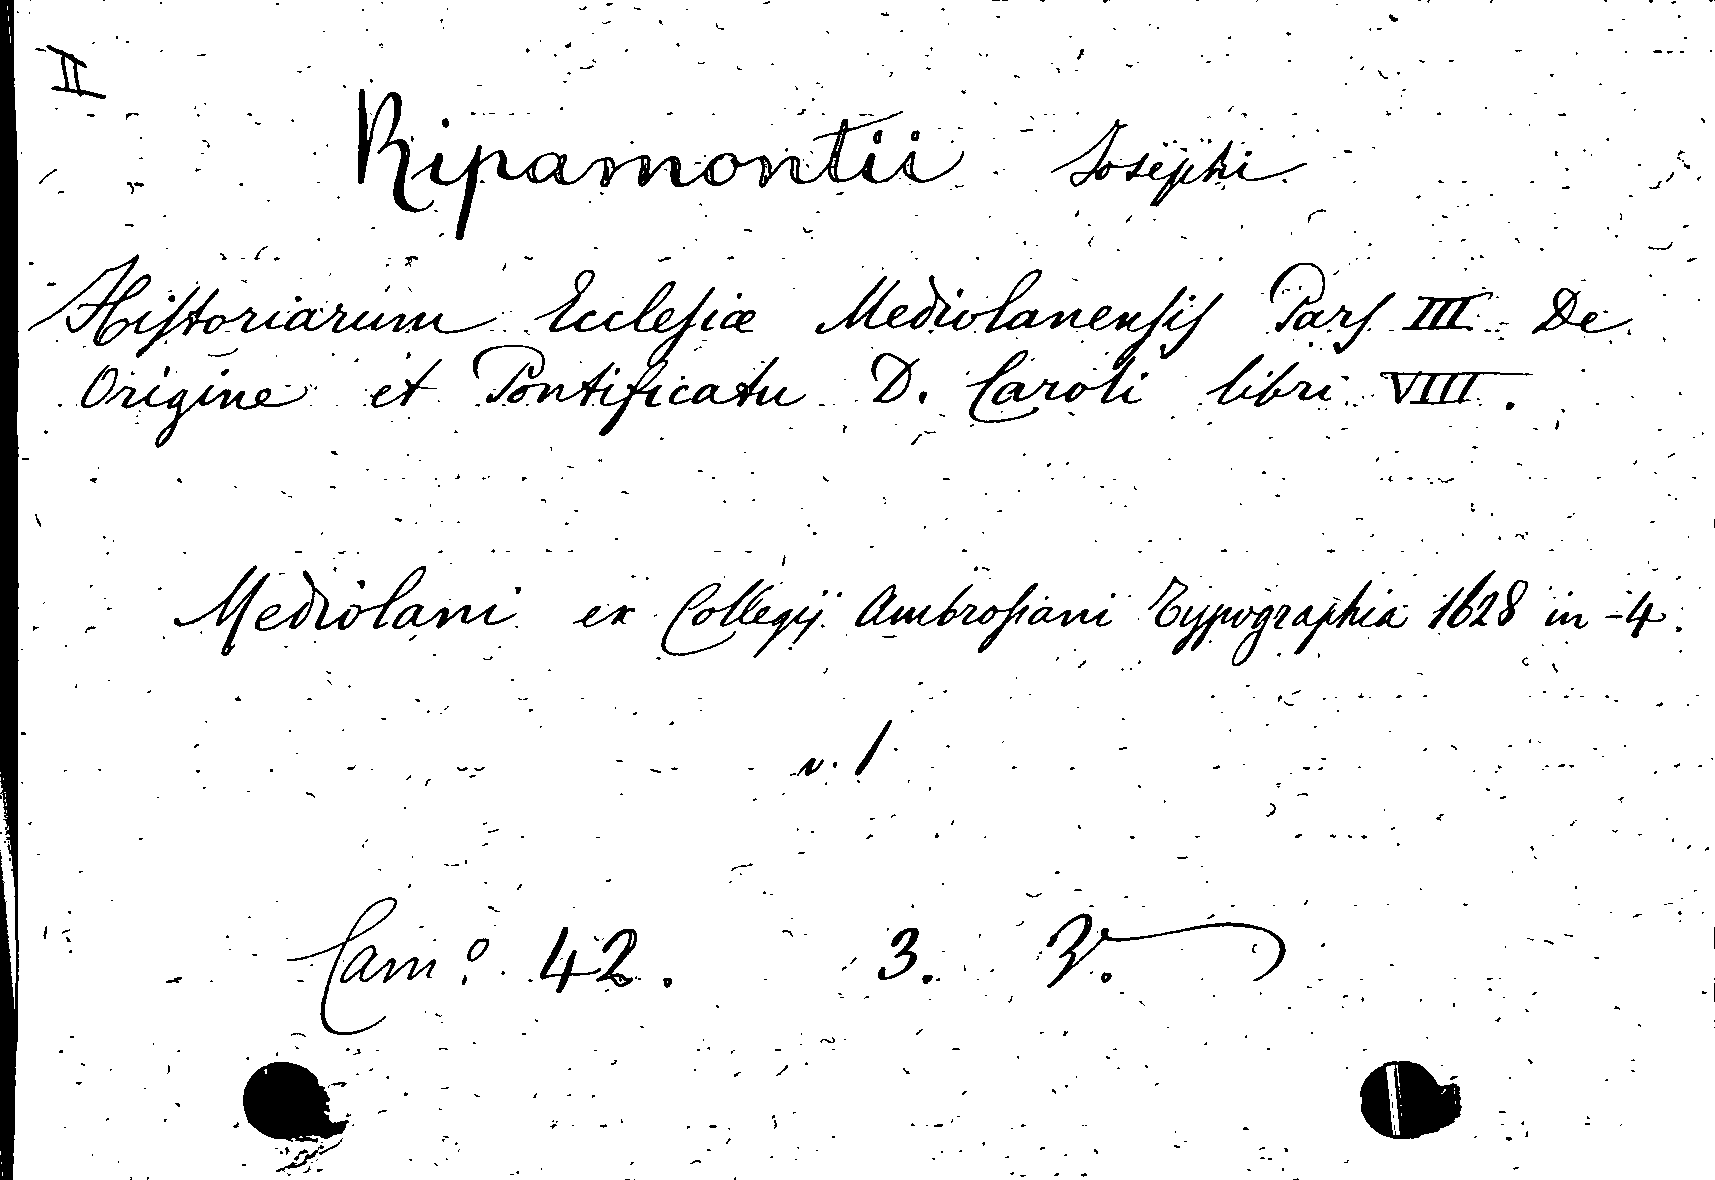 II
Ripamontii Josephi
Historiarum Ecclesiæ Mediolanensis Pars III De
Origine et Pontificatu D. Caroli libri VIII.
Mediolani ex Collegij Ambrosiani Typographia 1628 in -4.
v. 1
Cam.º 42. 3.